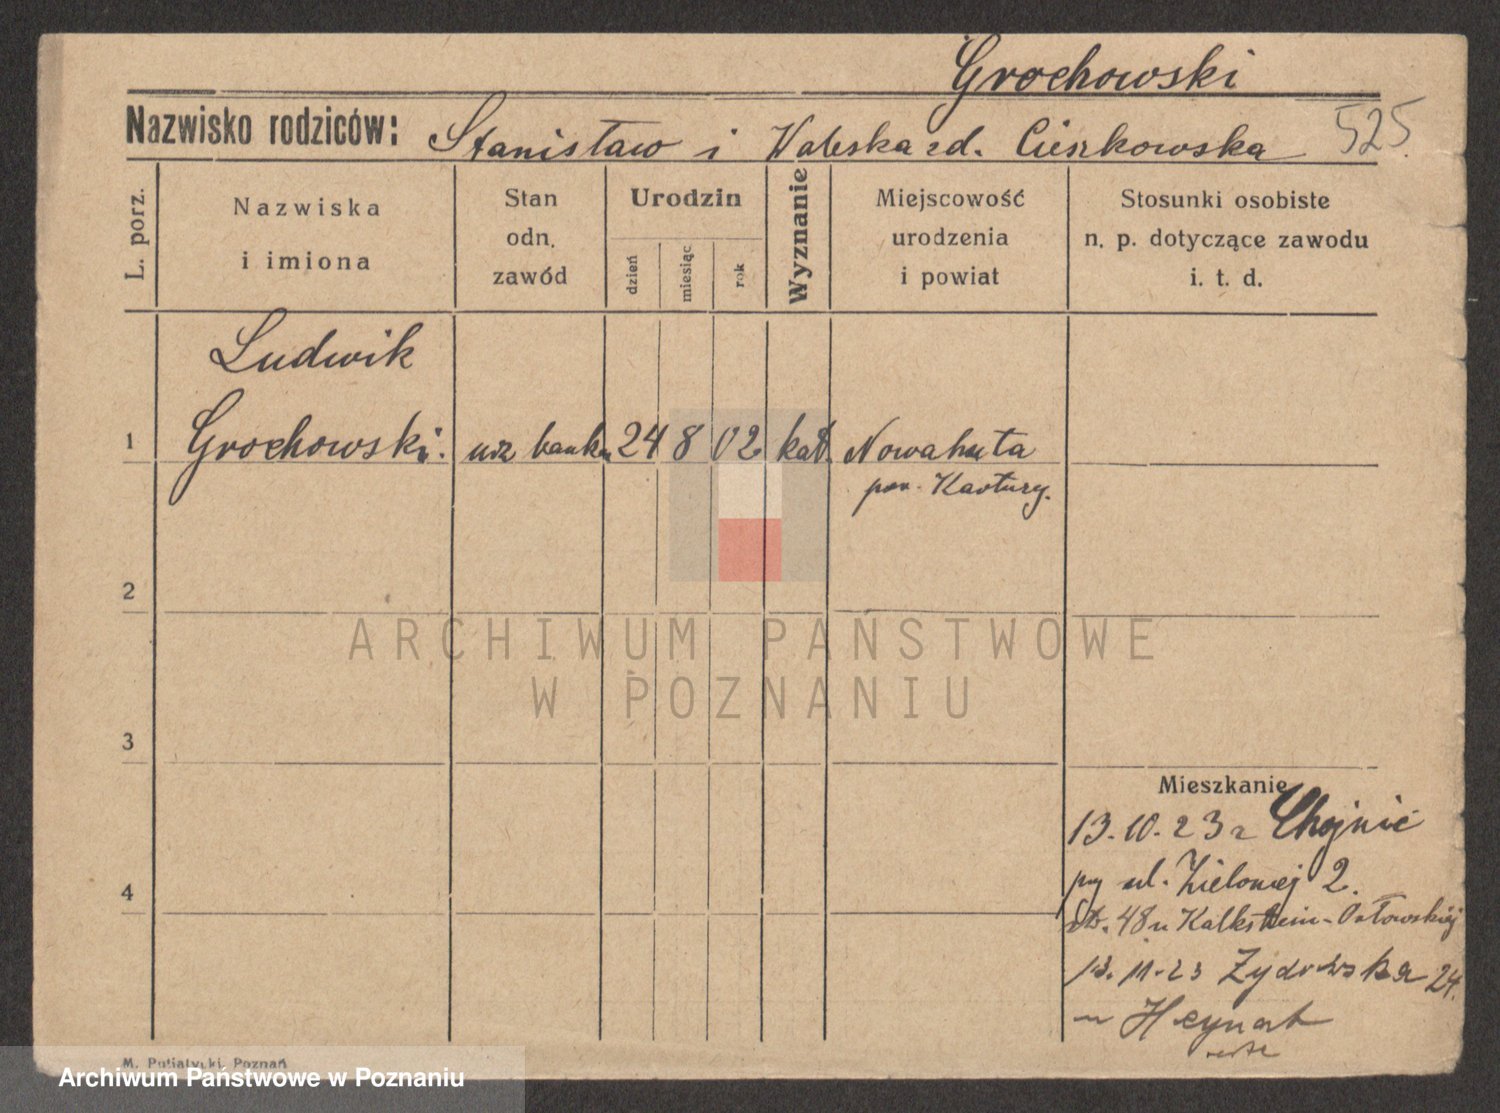 Grochowski
Nazwisko rodziców: Stanisław i Waleska zd. Cieszkowska 525
L. porz.
Nazwiska
i imiona
Stan
odn.
zawód
Urodzin
dzień
miesiąc
rok
Wyznanie
Miejscowość
urodzenia
i powiat
Stosunki osobiste
n. p. dotyczące zawodu
i. t. d.
Ludwik
1 Grochowski. urz banku 24 8 02 kat. Nowahuta
pow. Kartuzy.
2
ARCHIWUM PAŃSTWOWE
W POZNANIU
3
Mieszkanie
13.10.23 z Chojnic
4
ul. Zielonej 2.
48 u Kalkstein-Osłowskiej
13.11.23 Żydowska 24.
u Heynat
M. Putiatycki, Poznań
Archiwum Państwowe w Poznaniu